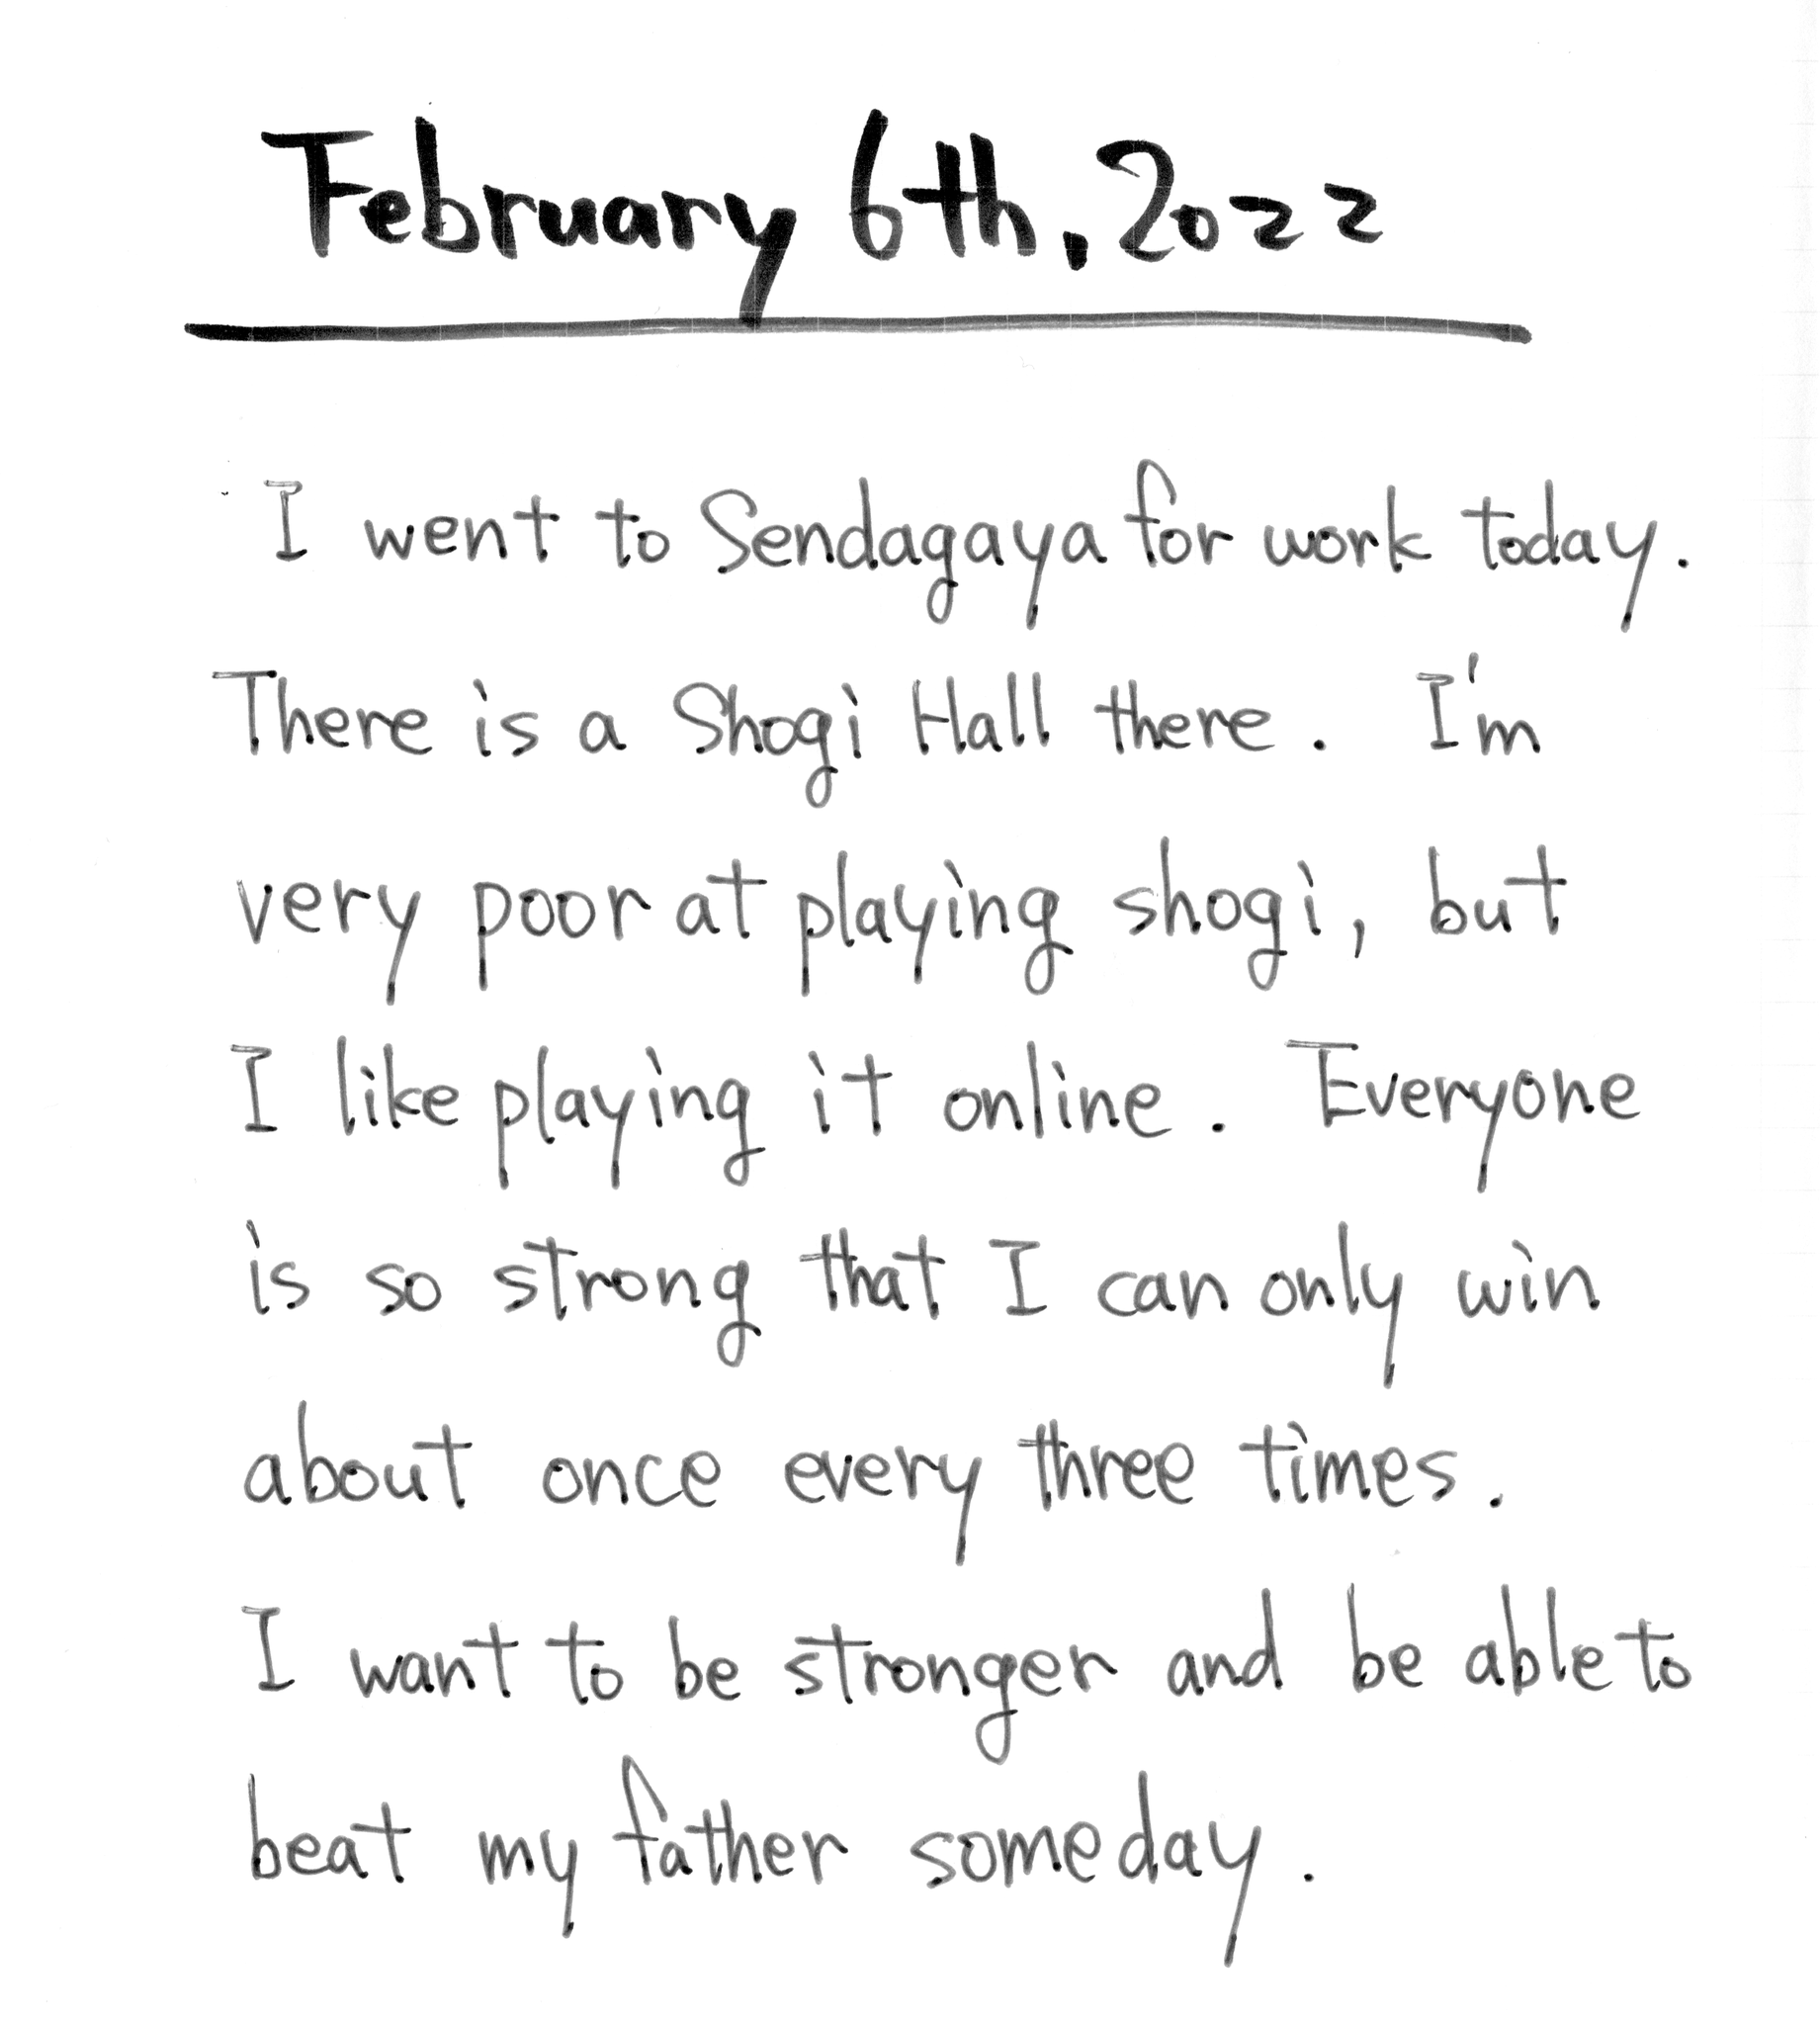 February 6th, 2022
I went to Sendagaya for work today.
There is a Shogi Hall there. I'm
very poor at playing shogi, but
I like playing it online. Everyone
is so strong that I can only win
about once every three times.
I want to be stronger and be able to
beat my father someday.